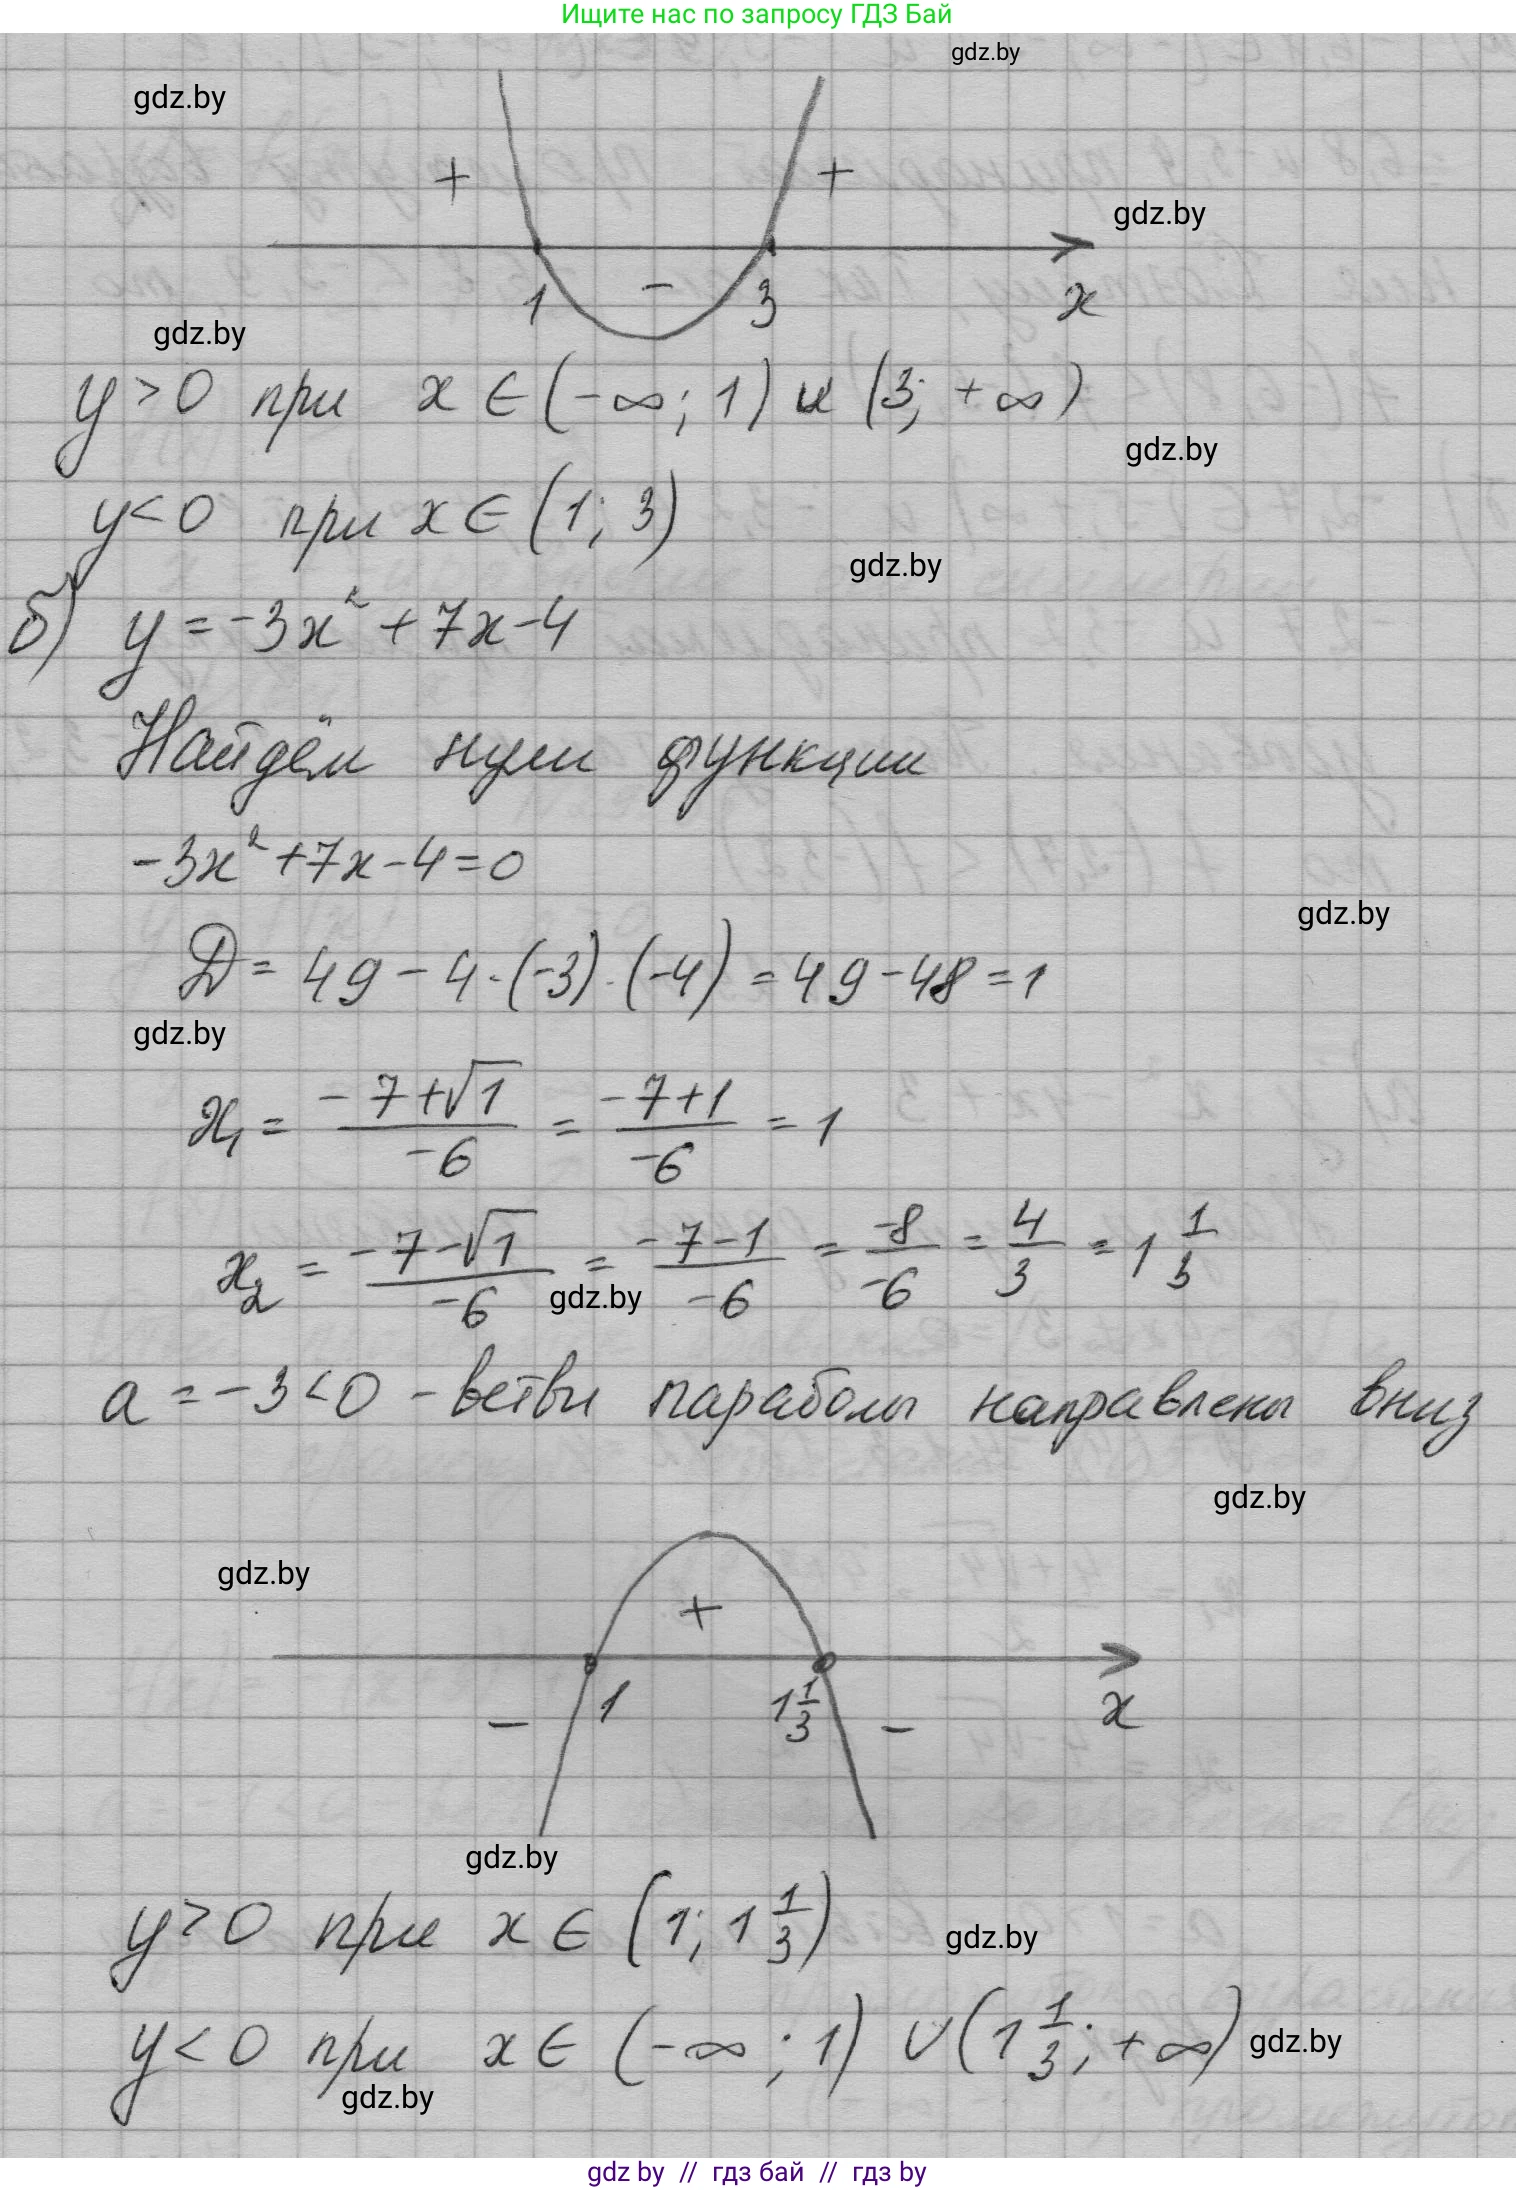 Ищите нас по запросу ГДЗ Бай
gdz.by
gdz.by
+ +
gdz.by
1 − 3 x
gdz.by
y > 0 при x ∈ (−∞; 1) и (3; +∞)
gdz.by
y < 0 при x ∈ (1; 3)
gdz.by
б) y = −3x² + 7x − 4
Найдём нули функции
−3x² + 7x − 4 = 0
gdz.by
D = 49 − 4 · (−3) · (−4) = 49 − 48 = 1
gdz.by
x₁ = (−7 + √1)/(−6) = (−7 + 1)/(−6) = 1
x₂ = (−7 − √1)/(−6) = (−7 − 1)/(−6) = (−8)/(−6) = 4/3 = 1 1/3
gdz.by
a = −3 < 0 − ветви параболы направлены вниз
gdz.by
gdz.by
+
− 1 1 1/3 − x
gdz.by
y > 0 при x ∈ (1; 1 1/3)
gdz.by
y < 0 при x ∈ (−∞; 1) ∪ (1 1/3; +∞)
gdz.by
gdz.by
gdz by // гдз бай // гдз by